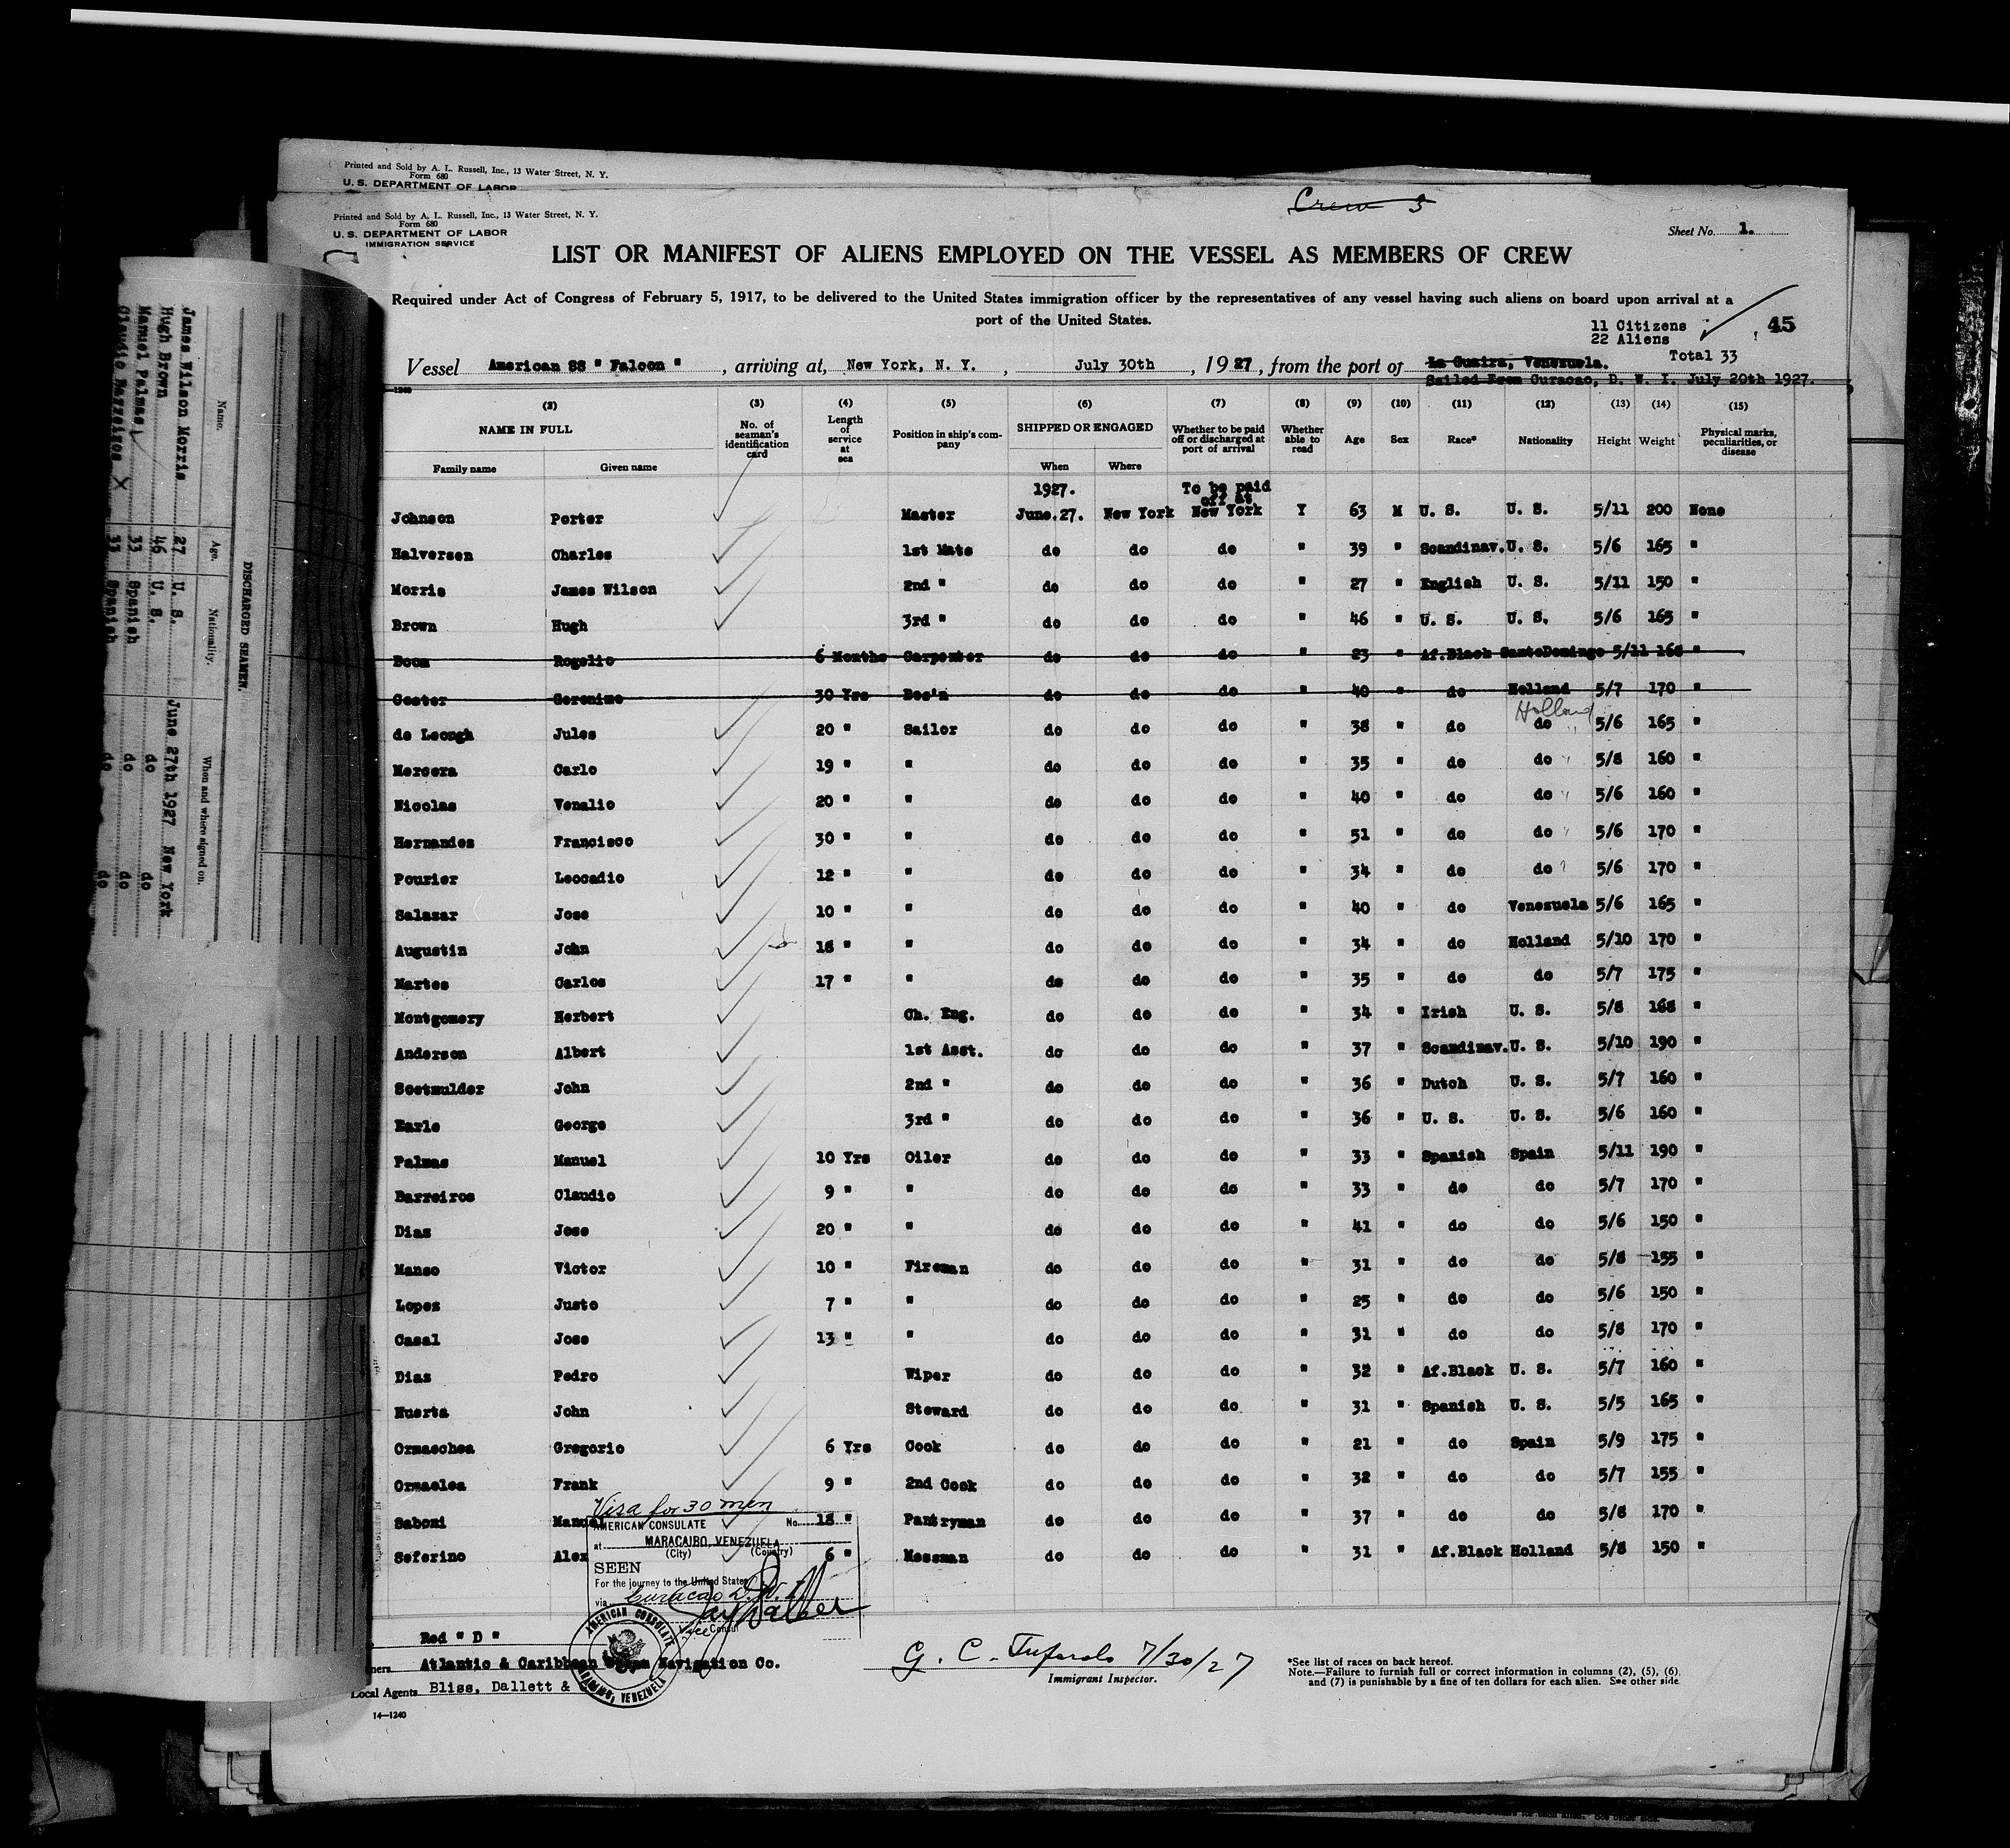 Printed and Sold by A. L. Russell, Inc., 13 Water Street, N. Y.
Form 680
U. S. DEPARTMENT OF LABOR
Printed and Sold by A. L. Russell, Inc., 13 Water Street, N. Y.
Form 680
U. S. DEPARTMENT OF LABOR
IMMIGRATION SERVICE
Crew 3
Sheet No. 1.
LIST OR MANIFEST OF ALIENS EMPLOYED ON THE VESSEL AS MEMBERS OF CREW
Required under Act of Congress of February 5, 1917, to be delivered to the United States immigration officer by the representatives of any vessel having such aliens on board upon arrival at a
port of the United States.
11 Citizens
22 Aliens
45
Total 33
Vessel American SS " Falcon ", arriving at, New York, N. Y., July 30th, 1927, from the port of La Guaira, Venezuela.
Sailed From Curacao, D. W. I. July 20th 1927.
(2) (3) (4) (5) (6) (7) (8) (9) (10) (11) (12) (13) (14) (15)
NAME IN FULL No. of seaman's identification card Length of service at sea Position in ship's company SHIPPED OR ENGAGED Whether to be paid off or discharged at port of arrival Whether able to read Age Sex Race* Nationality Height Weight Physical marks, peculiarities, or disease
Family name Given name When Where
1927. To be paid off at
Johnson Porter Master June.27. New York New York Y 63 M U. S. U. S. 5/11 200 None
Halversen Charles 1st Mate do do do " 39 " Scandinav. U. S. 5/6 165 "
Morris James Wilson 2nd " do do do " 27 " English U. S. 5/11 150 "
Brown Hugh 3rd " do do do " 46 " U. S. U. S. 5/6 165 "
Boom Rogelio 6 Months Carpenter do do do " 23 " Af.Black SantoDomingo 5/11 168 "
Coster Geronimo 30 Yrs Bos'n do do do " 40 " do Holland 5/7 170 "
Holland
de Leongh Jules 20 " Sailor do do do " 38 " do do 5/6 165 "
Mercera Carlo 19 " " do do do " 35 " do do 5/8 160 "
Nicolas Venalio 20 " " do do do " 40 " do do 5/6 160 "
Hernandez Francisco 30 " " do do do " 51 " do do 5/6 170 "
Pourier Leocadio 12 " " do do do " 34 " do do 5/6 170 "
Salazar Jose 10 " " do do do " 40 " do Venezuela 5/6 165 "
Augustin John 18 " " do do do " 34 " do Holland 5/10 170 "
Martes Carlos 17 " " do do do " 35 " do do 5/7 175 "
Montgomery Herbert Ch. Eng. do do do " 34 " Irish U. S. 5/8 168 "
Anderson Albert 1st Asst. do do do " 37 " Scandinav. U. S. 5/10 190 "
Soetmulder John 2nd " do do do " 36 " Dutch U. S. 5/7 160 "
Earle George 3rd " do do do " 36 " U. S. U. S. 5/6 160 "
Palmas Manuel 10 Yrs Oiler do do do " 33 " Spanish Spain 5/11 190 "
Barreiros Claudio 9 " " do do do " 33 " do do 5/7 170 "
Diaz Jose 20 " " do do do " 41 " do do 5/6 150 "
Manso Victor 10 " Fireman do do do " 31 " do do 5/8 155 "
Lopez Justo 7 " " do do do " 25 " do do 5/6 150 "
Casal Jose 13 " " do do do " 31 " do do 5/8 170 "
Diaz Pedro Wiper do do do " 32 " Af.Black U. S. 5/7 160 "
Huerta John Steward do do do " 31 " Spanish U. S. 5/5 165 "
Ormaechea Gregorio 6 Yrs Cook do do do " 21 " do Spain 5/9 175 "
Ormaelea Frank 9 " 2nd Cook do do do " 32 " do do 5/7 155 "
Saboni Manuel 18 " Pantryman do do do " 37 " do do 5/8 170 "
Seferino Alex 6 " Messman do do do " 31 " Af.Black Holland 5/8 150 "
Visa for 30 men
AMERICAN CONSULATE No.
at MARACAIBO, VENEZUELA
(City) (Country)
SEEN
For the journey to the United States
via Curacao D.W.I.
Jay Walker
Vice Consul
AMERICAN CONSULATE
MARACAIBO, VENEZUELA
Red " D "
Atlantic & Caribbean Steam Navigation Co.
Local Agents Bliss, Dallett &
14—1240
G. C. 7/30/27
Immigrant Inspector.
*See list of races on back hereof.
Note.—Failure to furnish full or correct information in columns (2), (5), (6),
and (7) is punishable by a fine of ten dollars for each alien. See other side
DISCHARGED SEAMEN.
Name. Age. Nationality. When and where signed on.
James Wilson Morris 27 U. S. June 27th 1927 New York
Hugh Brown 46 U. S. do do
Manuel Palmas 33 Spanish do do
Claudio Barreiros X 33 Spanish do do